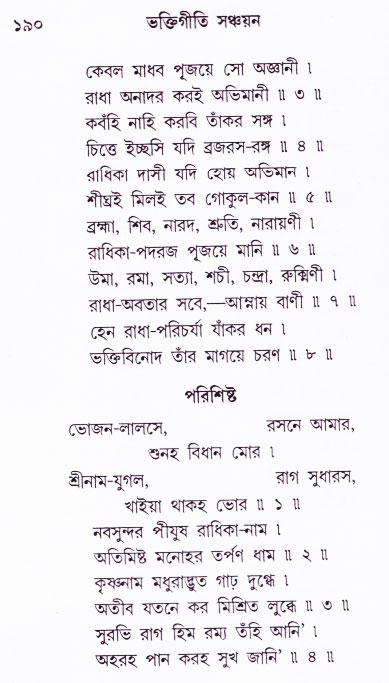 ১৯০ ভক্তিগীতি সঞ্চয়ন
কেবল মাধব পূজয়ে সো অজ্ঞানী ।
রাধা অনাদর করই অভিমানী ॥ ৩ ॥
কবঁহি নাহি করবি তাঁকর সঙ্গ ।
চিত্তে ইচ্ছসি যদি ব্রজরস-রঙ্গ ॥ ৪ ॥
রাধিকা দাসী যদি হোয় অভিমান ।
শীঘ্রই মিলই তব গোকুল-কান ॥ ৫ ॥
ব্রহ্মা, শিব, নারদ, শ্রুতি, নারায়ণী ।
রাধিকা-পদরজ পূজয়ে মানি ॥ ৬ ॥
উমা, রমা, সত্যা, শচী, চন্দ্রা, রুক্মিণী ।
রাধা-অবতার সবে,—আম্নায় বাণী ॥ ৭ ॥
হেন রাধা-পরিচর্যা যাঁকর ধন ।
ভক্তিবিনোদ তাঁর মাগয়ে চরণ ॥ ৮ ॥
পরিশিষ্ট
ভোজন-লালসে, রসনে আমার,
শুনহ বিধান মোর ।
শ্রীনাম-যুগল, রাগ সুধারস,
খাইয়া থাকহ ভোর ॥ ১ ॥
নবসুন্দর পীযুষ রাধিকা-নাম ।
অতিমিষ্ট মনোহর তর্পণ ধাম ॥ ২ ॥
কৃষ্ণনাম মধুরাদ্ভুত গাঢ় দুগ্ধে ।
অতীব যতনে কর মিশ্রিত লুব্ধে ॥ ৩ ॥
সুরভি রাগ হিম রম্য তঁহি আনি’ ।
অহরহ পান করহ সুখ জানি’ ॥ ৪ ॥